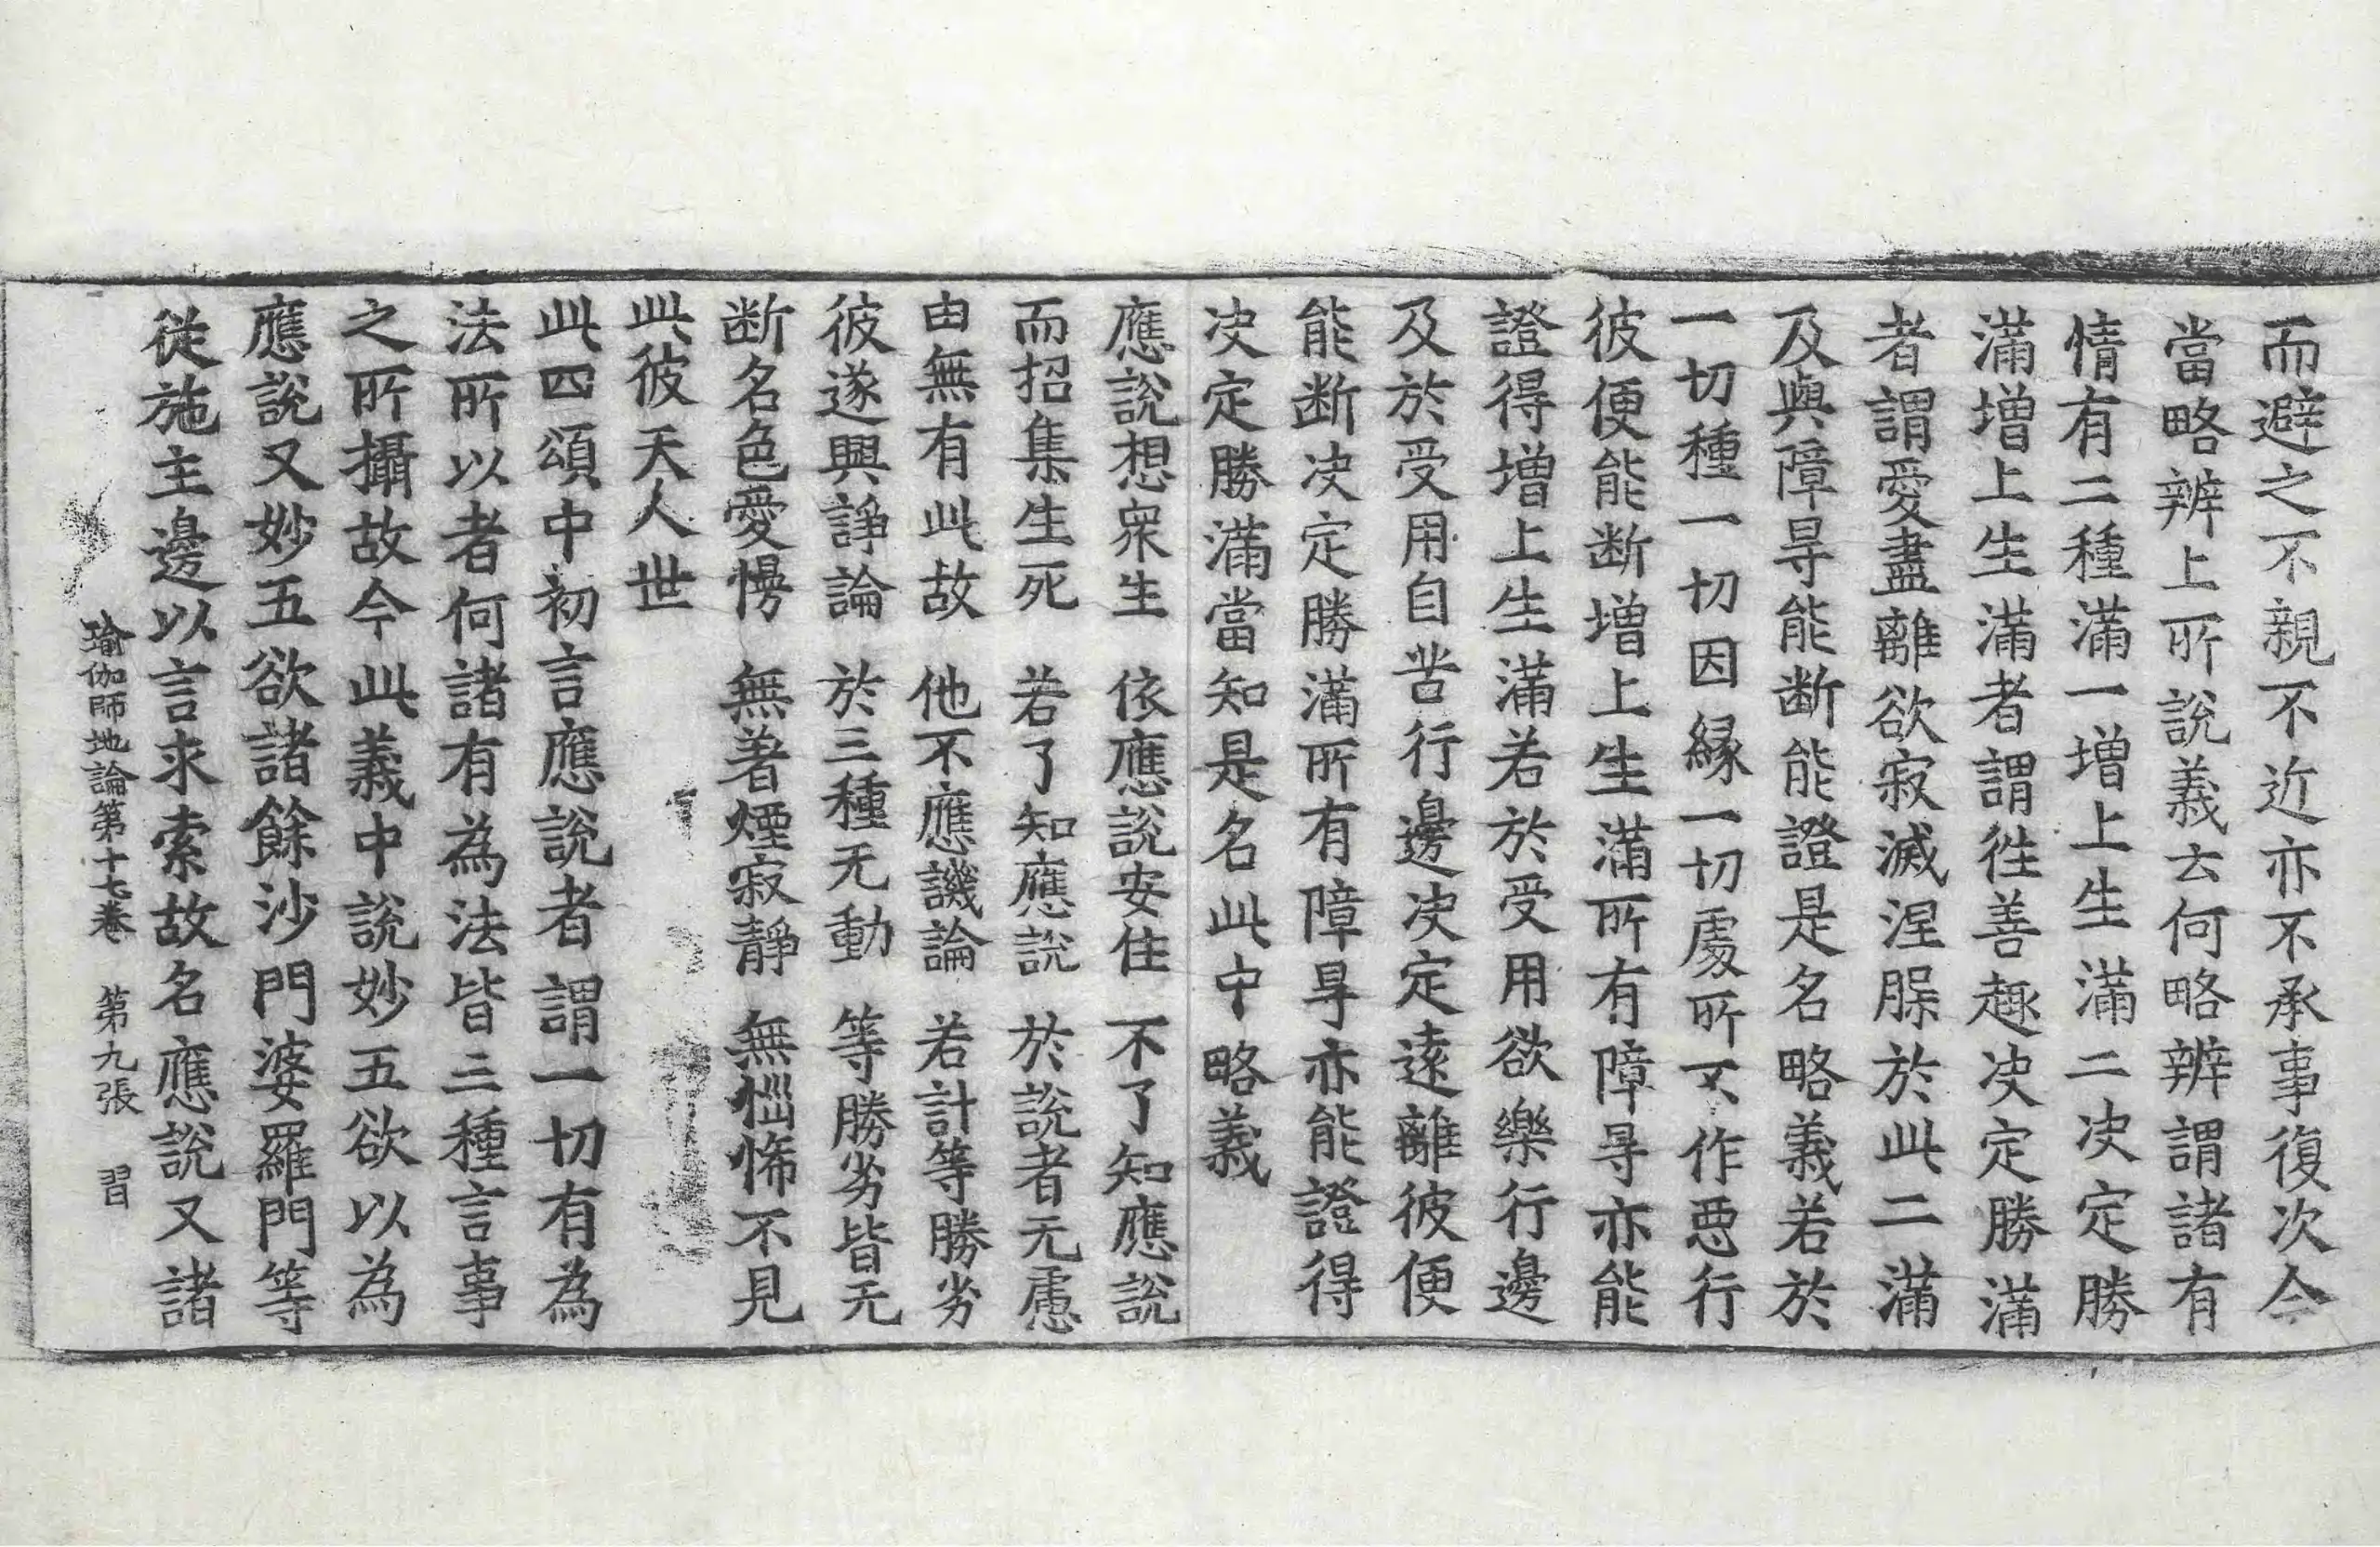 而避之不親不近亦不承事復次今
當略辨上所說義云何略辨謂諸有
情有二種滿一增上生滿二决定勝
滿增上生滿者謂徃善趣决定勝滿
者謂愛盡離欲寂滅涅脲於此二滿
及與障㝵能断能證是名略義若於
一切種一切因緣一切處所不作惡行
彼便能断增上生滿所有障㝵亦能
證得增上生滿若於受用欲樂行邊
及於受用自苦行邊决定遠離彼便
能断决定勝滿所有障㝵亦能證得
决定勝滿當知是名此中略義
應說想衆生　依應說安住　不了知應說
而招集生死　若了知應說　於說者无慮
由無有此故　他不應譏論　若計等勝劣
彼遂興諍論　於三種无動　等勝劣皆无
断名色愛慢　無著煙寂靜　無惱悕不見
此彼天人世
此四頌中初言應說者謂一切有為
法所以者何諸有為法皆三種言事
之所攝故今此義中說妙五欲以為
應說又妙五欲諸餘沙門婆羅門等
從施主邊以言求索故名應說又諸
瑜伽師地論第十七卷　第九張　習